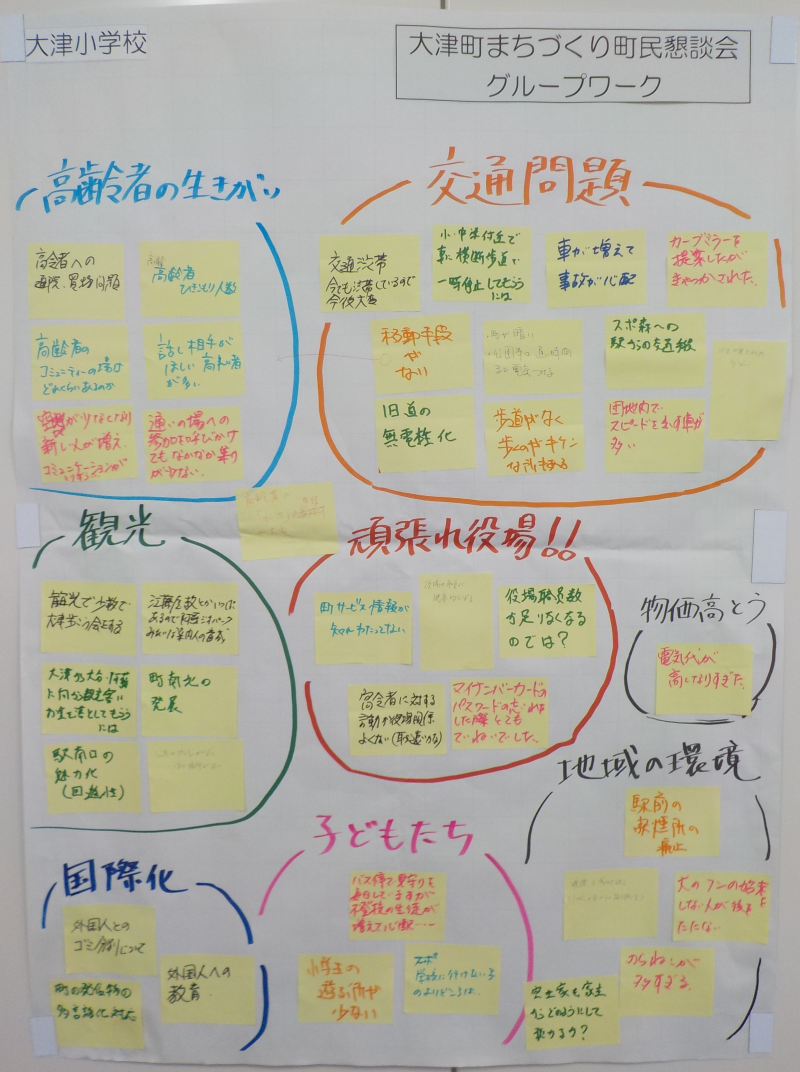 大津小学校
大津町まちづくり町民懇談会
グループワーク
高齢者の生きがい
高令者への
買物問題
高齢者
ひきこもり人数
高齢者の
コミュニティーの場は
どれくらいあるのか
話し相手が
ほしい高令者
が多い
が少なくなり
新しい人が増え
コミュニケーションが
通いの場への
参加を呼びかけ
てもなかなか集り
が少ない.
交通問題
交通渋帯
今でも渋帯しているので
今後大変
小・中学校付近で
車に横断歩道で
一時停止してもらう
には
車が増えて
事故が心配
カーブミラーを
提案したが
きゃっかされた.
移動手段
が
ない
スポ森への
駅からの交通網
旧道の
無電柱化
歩道がなく
歩くのがキケン
な所がある
団地内で
スピードを出す車が
多い
観光
観光で少数で
大津歩こう会をする
大津から大分・阿蘇
に向かう観光客に
お金を落としてもらう
には
町観光の
発展
駅南口の
魅力化
(回遊性)
頑張れ役場!!
町サービス情報が
役場職員数
が足りなくなる
のでは?
高令者に対する
よくない
マイナンバーカードの
パスワードの
した際とても
ていねいでした.
物価高とう
電気代が
高くなりすぎた.
地域の環境
駅前の
喫煙所の
廃止
犬のフンの始末を
しない人が後を
たたない
のらねこが
多すぎる.
からどのようにして
変わるか?
子どもたち
バス停で見守りを
毎日していますが
不登校の生徒が
増えて心配……
小学生の
遊ぶ所が
少ない
学校に行けない子
のよりどころは.
国際化
外国人との
ゴミ分別について
町の発信物の
多言語化対応
外国人への
教育.